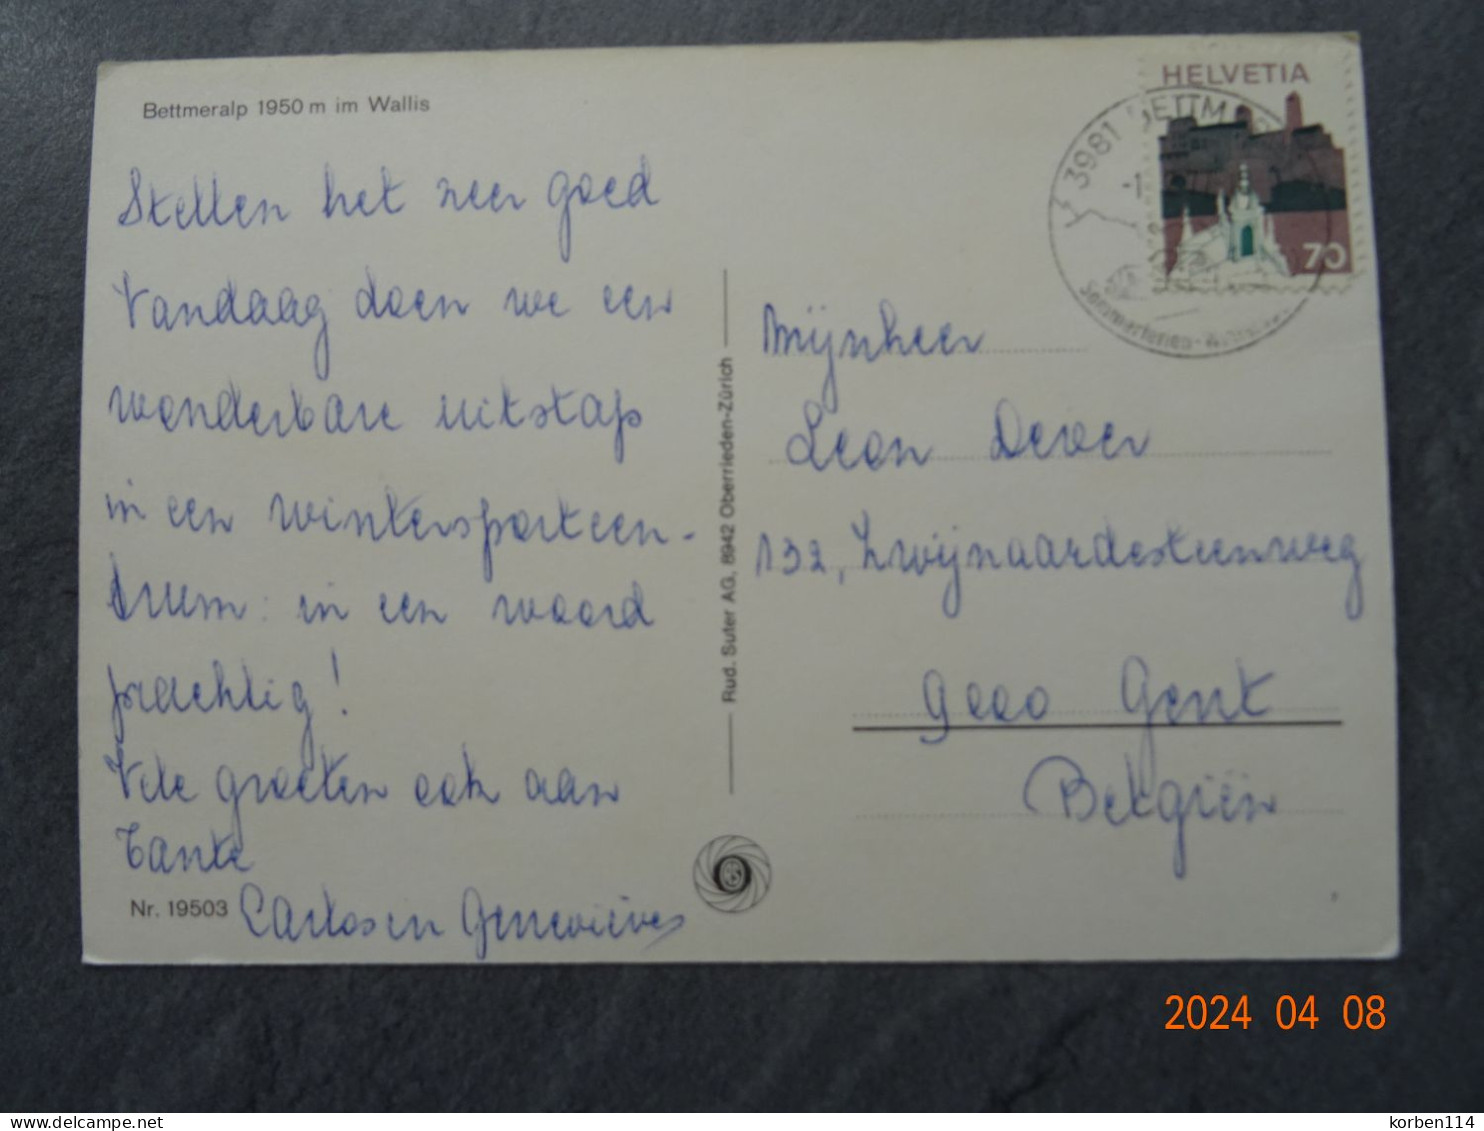 Bettmeralp 1950 m im Wallis
Stellen het zeer goed
Vandaag doen we een
wonderbare uitstap
in een wintersportcen-
trum: in een woord
prachtig!
Vele groeten ook aan
Tante
Carlos en Geneviève
Nr. 19503
Rud. Suter AG, 8942 Oberrieden-Zürich
HELVETIA
70
3981 BETTM
Sommerferien-
Mijnheer
Leon
132, Zwijnaardesteenweg
9000 Gent
Belgiën
2024 04 08
delcampe.net
korben114